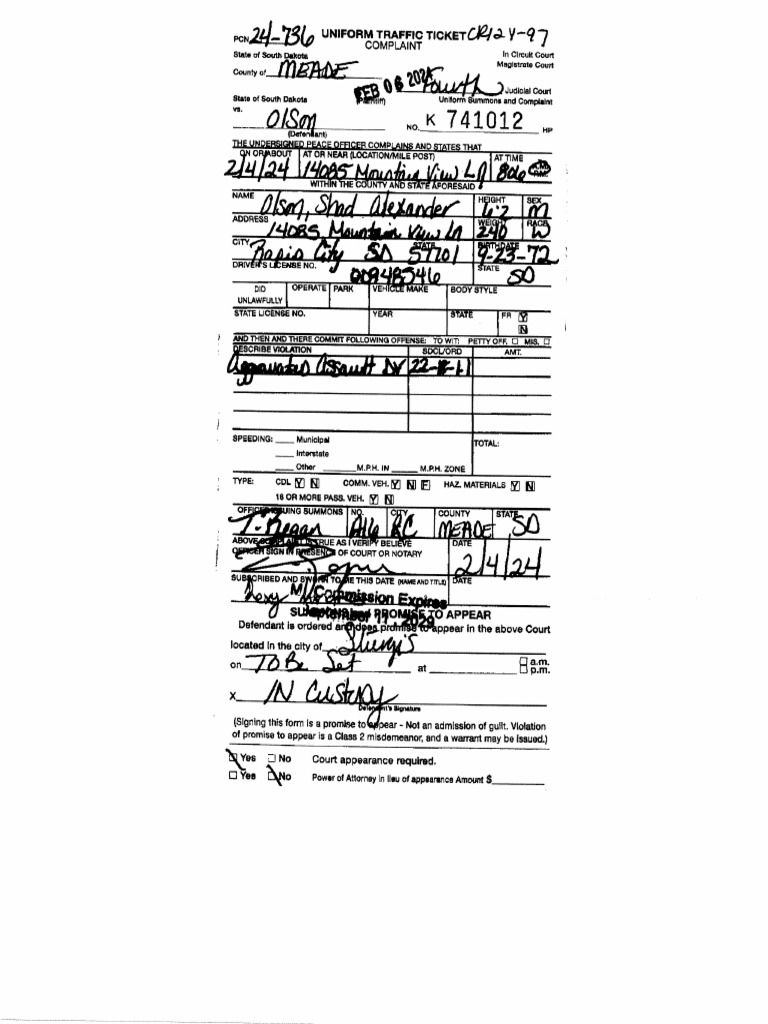 PCN 24-736 UNIFORM TRAFFIC TICKET CRI24-97
COMPLAINT
State of South Dakota In Circuit Court
Magistrate Court
County of MEADE
FEB 06 2024 Fourth Judicial Court
State of South Dakota Uniform Summons and Complaint
vs.
Olson NO. K 741012 HP
(Defendant)
THE UNDERSIGNED PEACE OFFICER COMPLAINS AND STATES THAT
ON OR ABOUT AT OR NEAR (LOCATION/MILE POST) AT TIME
2/4/24 14085 Mountain View LN 806
WITHIN THE COUNTY AND STATE AFORESAID
NAME HEIGHT SEX
Olson, Shad Alexander 6'2 M
ADDRESS WEIGHT RACE
14085 Mountain View Ln 240 W
CITY STATE BIRTHDATE
Rapid City SD 57701 9-23-72
DRIVER'S LICENSE NO. STATE
00948546 SD
DID OPERATE PARK VEHICLE MAKE BODY STYLE
UNLAWFULLY
STATE LICENSE NO. YEAR STATE FR Y
N
AND THEN AND THERE COMMIT FOLLOWING OFFENSE: TO WIT: PETTY OFF. ☐ MIS. ☐
DESCRIBE VIOLATION SDCL/ORD AMT.
Aggravated Assault DV 22-18-1.1
SPEEDING: ____ Municipal TOTAL:
____ Interstate
____ Other ______ M.P.H. IN _____ M.P.H. ZONE
TYPE: CDL Y N COMM. VEH. Y N F HAZ. MATERIALS Y N
16 OR MORE PASS. VEH. Y N
OFFICER ISSUING SUMMONS NO. CITY COUNTY STATE
T. Regan A116 RC MEADE SD
ABOVE COMPLAINT IS TRUE AS I VERIFY BELIEVE DATE
OFFICER SIGN IN PRESENCE OF COURT OR NOTARY
2/4/24
SUBSCRIBED AND SWORN TO ME THIS DATE (NAME AND TITLE) DATE
My Commission Expires
September 11, 2029
SUMMONS PROMISE TO APPEAR
Defendant is ordered and does promise to appear in the above Court
located in the city of Sturgis
on TO Be Set at ☐ a.m.
☐ p.m.
X IN Custody
Defendant's Signature
(Signing this form is a promise to appear - Not an admission of guilt. Violation
of promise to appear is a Class 2 misdemeanor, and a warrant may be issued.)
☒ Yes ☐ No Court appearance required.
☐ Yes ☒ No Power of Attorney in lieu of appearance Amount $